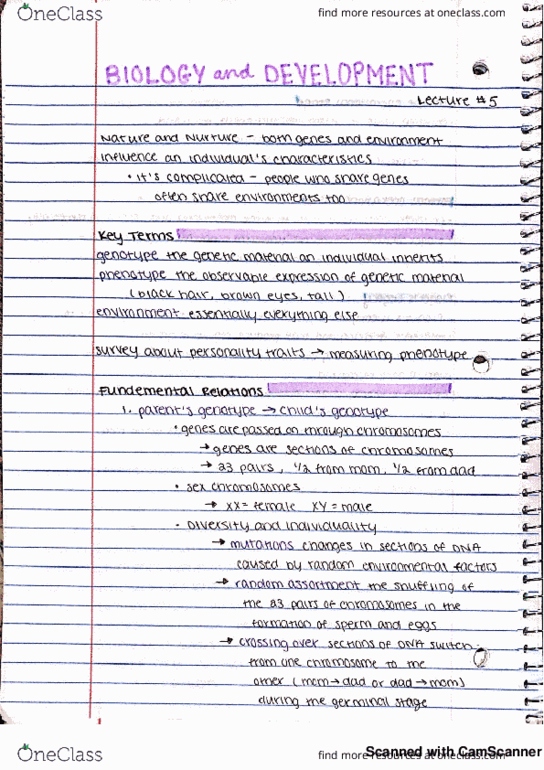 OneClass
find more resources at oneclass.com
BIOLOGY and DEVELOPMENT
Lecture #5
Nature and Nurture - both genes and environment
influence an individual's characteristics
• it's complicated - people who share genes
often share environments too
Key Terms
genotype the genetic material an individual inherits
phenotype the observable expression of genetic material
(black hair, brown eyes, tall)
environment essentially everything else
survey about personality traits → measuring phenotype
Fundemental Relations
1. parent's genotype → child's genotype
• genes are passed on through chromosomes
→ genes are sections of chromosomes
→ 23 pairs, 1/2 from mom, 1/2 from dad
• sex chromosomes
→ XX = female XY = male
• Diversity and individuality
→ mutations changes in sections of DNA
caused by random environmental factors
→ random assortment the shuffling of
the 23 pairs of chromosomes in the
formation of sperm and eggs
→ crossing over sections of DNA switch
from one chromosome to the
other (mom→dad or dad→mom)
during the germinal stage
OneClass
find more resources at oneclass.com
Scanned with CamScanner